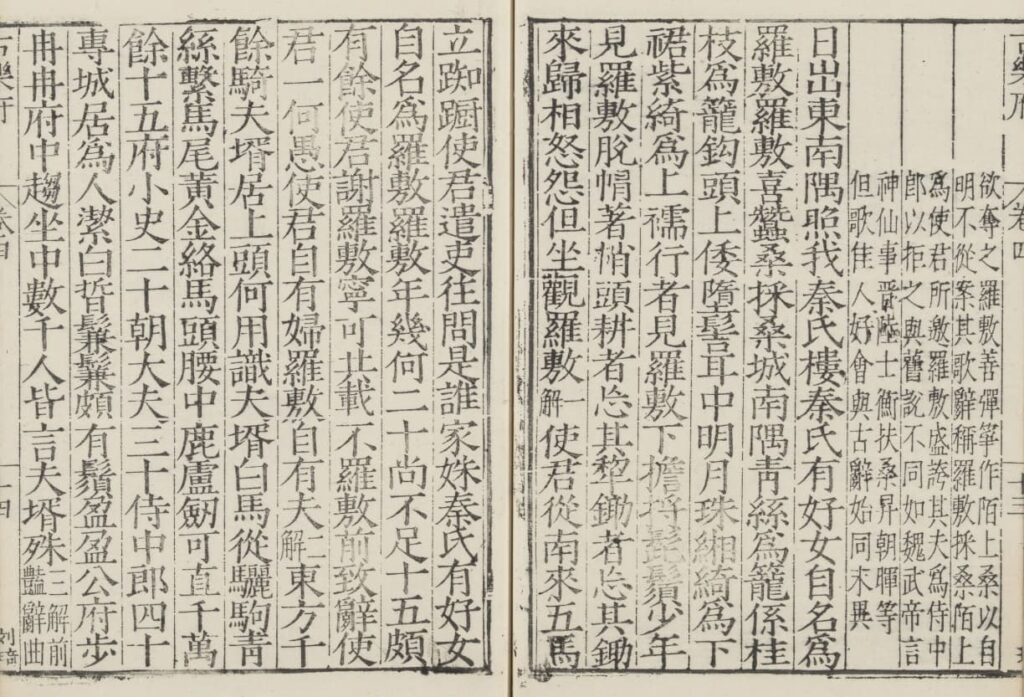 古樂府 卷四 十三
欲奪之羅敷善彈筝作陌上桑以自
明不從案其歌辭稱羅敷採桑陌上
爲使君所邀羅敷盛誇其夫爲侍中
郎以拒之與舊說不同如魏武帝言
神仙事晉陸士衡扶桑昇朝暉等
但歌佳人好會與古辭始同末異
日出東南隅照我秦氏樓秦氏有好女自名爲
羅敷羅敷喜蠶桑採桑城南隅靑絲爲籠係桂
枝爲籠鈎頭上倭墮髻耳中明月珠緗綺爲下
裙紫綺爲上襦行者見羅敷下擔捋髭鬚少年
見羅敷脫帽著帩頭耕者忘其犂鋤者忘其鋤
來歸相怒怨但坐觀羅敷一解使君從南來五馬
立踟蹰使君遣吏往問是誰家姝秦氏有好女
自名爲羅敷羅敷年幾何二十尚不足十五頗
有餘使君謝羅敷寧可共載不羅敷前致辭使
君一何愚使君自有婦羅敷自有夫二解東方千
餘騎夫壻居上頭何用識夫壻白馬從驪駒靑
絲繫馬尾黃金絡馬頭腰中鹿盧劒可直千萬
餘十五府小史二十朝大夫三十侍中郎四十
專城居爲人潔白晳鬑鬑頗有鬚盈盈公府步
冉冉府中趨坐中數千人皆言夫壻殊三解前豔辭曲
古樂府 卷四 十四